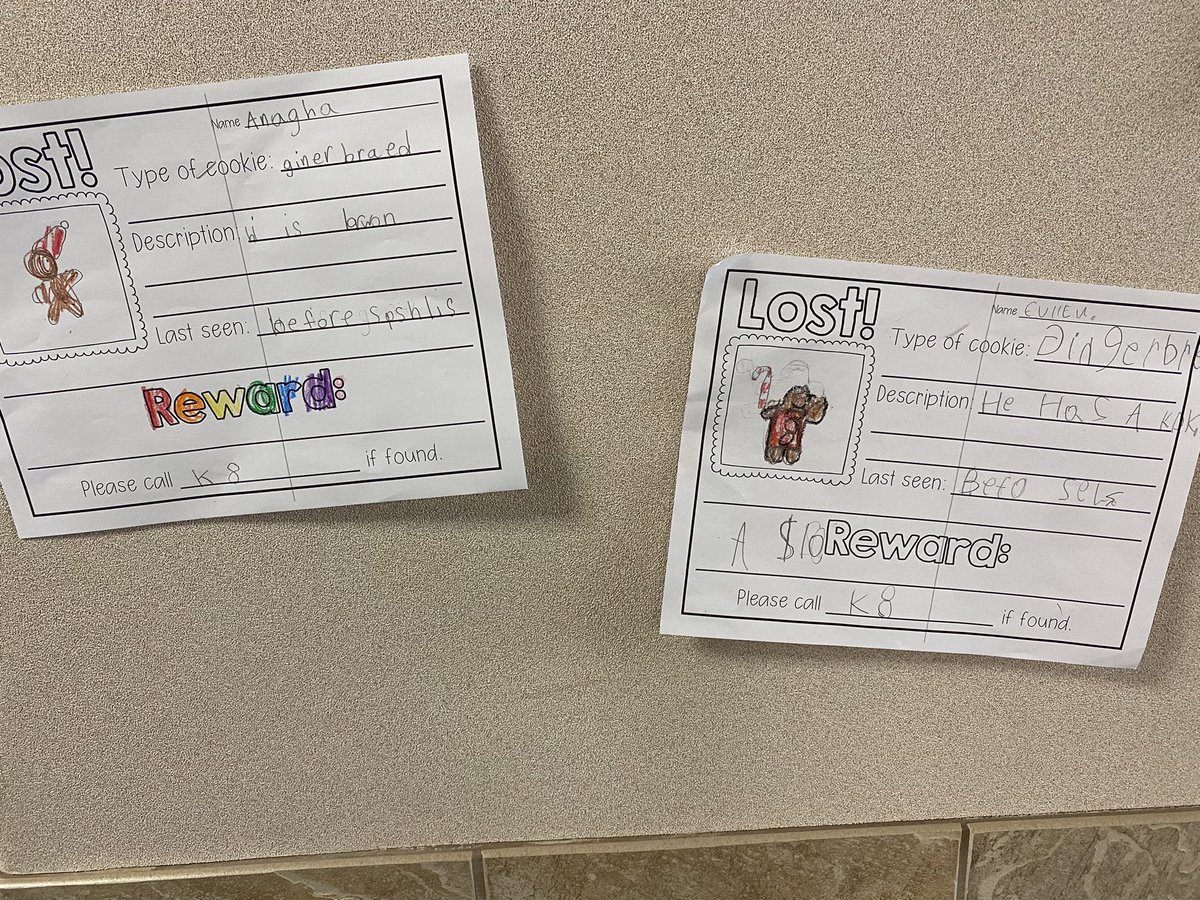 ost!
Name Anagha
Type of cookie: giner braed
Description: is
Last seen: before
Reward:
Please call K 8 if found.
Lost!
Name
Type of cookie: Gingerbr
Description: He Has A
Last seen: Befo
A Reward:
Please call K 8 if found.